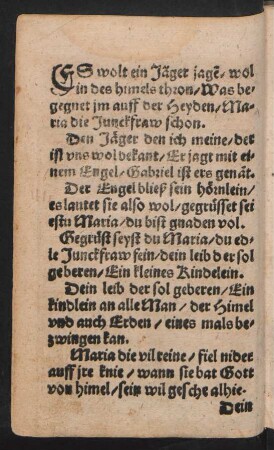 ES wolt ein Jäger jagẽ/ wol
in des himels thron/ Was be
gegnet jm auff der Heyden/ Ma-
ria die Junckfraw schon.
Den Jäger den ich meine/ der
ist vns wol bekant/ Er jagt mit ei-
nem Engel/ Gabriel ist ers genāt.
Der Engel bließ sein hörnlein/
es lautet sie also wol/ gegrüsset sei
estu Maria/ du bist gnaden vol.
Gegrüst seyst du Maria/ du ed-
le Junckfraw fein/ dein leib der sol
geberen/ Ein kleines Kindelein.
Dein leib der sol geberen/ Ein
kindlein an alle Man/ der Himel
vnd auch Erden/ eines mals be-
zwingen kan.
Maria die vil reine/ fiel nider
auff jre knie/ wann sie bat Gott
von himel/ sein wil gesche alhie.
Dein